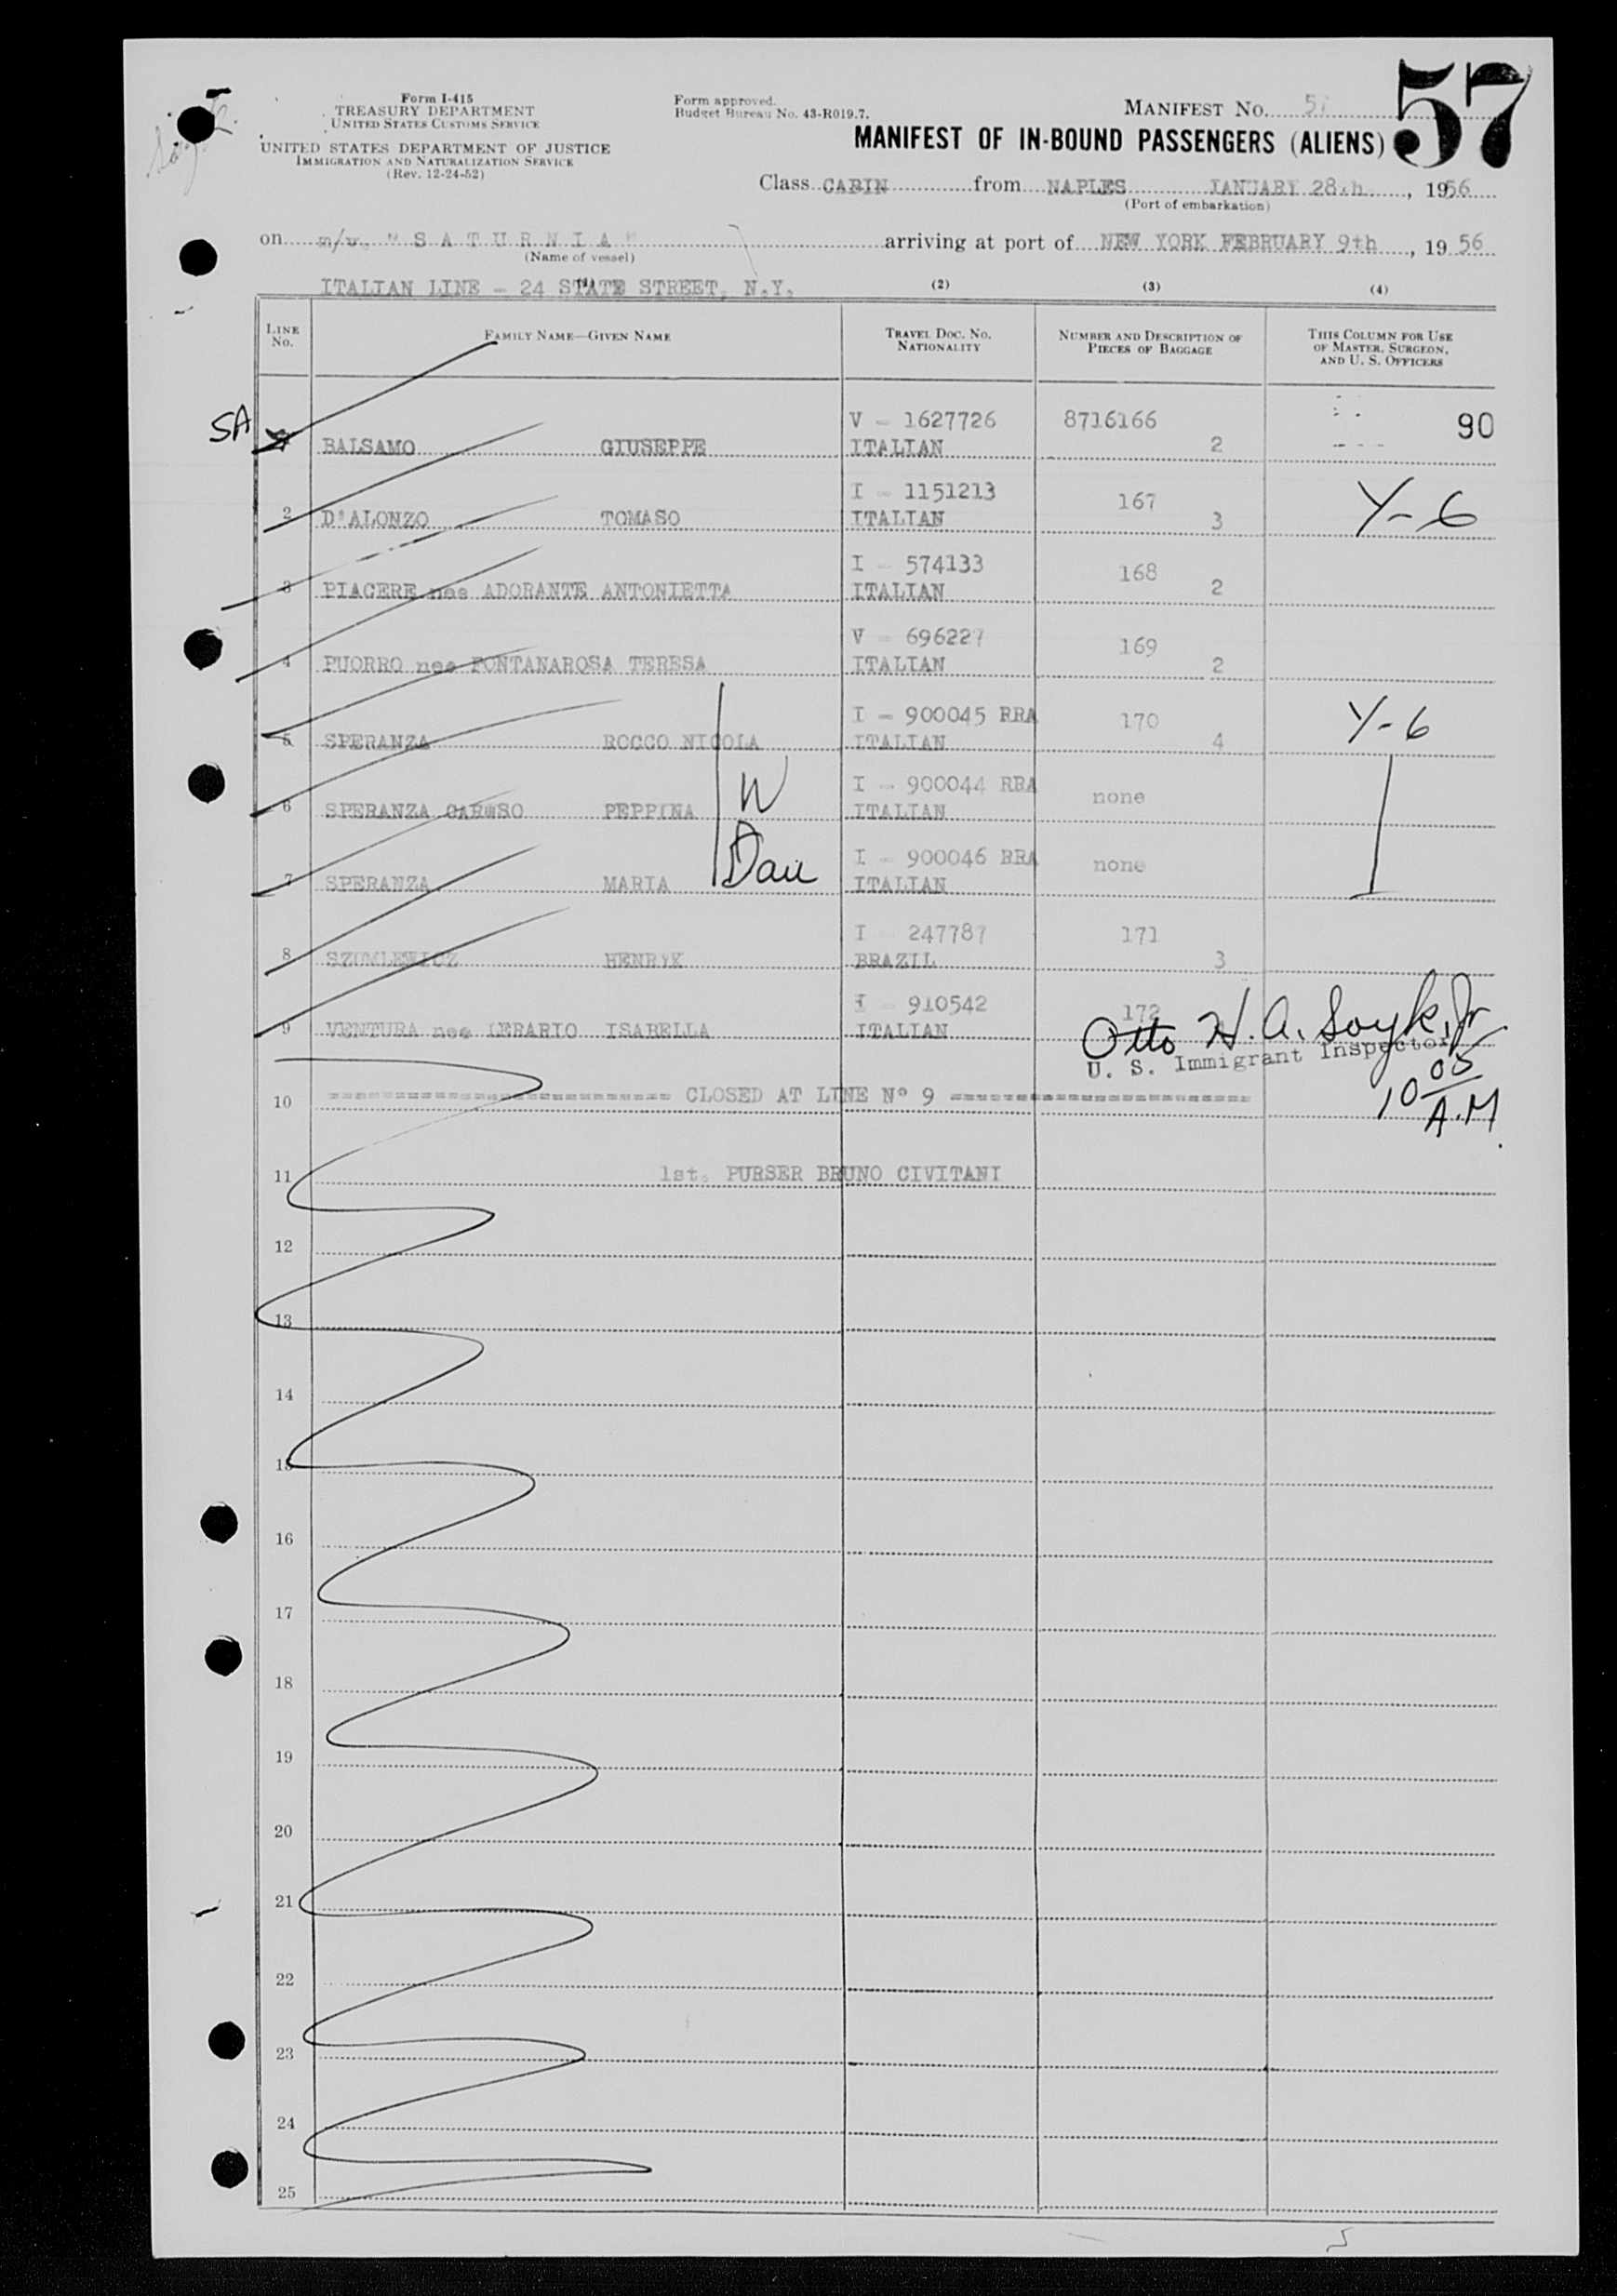 57
Form I-415
TREASURY DEPARTMENT
UNITED STATES CUSTOMS SERVICE
UNITED STATES DEPARTMENT OF JUSTICE
IMMIGRATION AND NATURALIZATION SERVICE
(Rev. 12-24-52)
Form approved.
Budget Bureau No. 43-R019.7.
MANIFEST NO. 57
MANIFEST OF IN-BOUND PASSENGERS (ALIENS)
Class CABIN from NAPLES JANUARY 28th, 1956
(Port of embarkation)
on m/v. "SATURNIA" arriving at port of NEW YORK FEBRUARY 9th, 1956
(Name of vessel)
ITALIAN LINE - 24 STATE STREET, N.Y.
(1) (2) (3) (4)
LINE No. FAMILY NAME—GIVEN NAME TRAVEL DOC. NO. NATIONALITY NUMBER AND DESCRIPTION OF PIECES OF BAGGAGE THIS COLUMN FOR USE OF MASTER, SURGEON, AND U. S. OFFICERS
SA V - 1627726 8716166 90
BALSAMO GIUSEPPE ITALIAN 2
I - 1151213 167 Y-6
2 D'ALONZO TOMASO ITALIAN 3
I - 574133 168
3 PIACERE nee ADORANTE ANTONIETTA ITALIAN 2
V - 696227 169
4 PUORRO nee FONTANAROSA TERESA ITALIAN 2
I - 900045 RRA 170 Y-6
5 SPERANZA ROCCO NICOLA ITALIAN 4
I - 900044 RRA none
6 SPERANZA CARUSO PEPPINA W ITALIAN
I - 900046 RRA none
7 SPERANZA MARIA Dau ITALIAN
I 247787 171
8 SZUMLEWICZ HENRYK BRAZIL 3
I - 910542 172
9 VENTURA nee LERARIO ISABELLA ITALIAN
Otto H. A. Soyk, Jr.
U. S. Immigrant Inspector
10 05 A.M.
10 CLOSED AT LINE N° 9
11 1st. PURSER BRUNO CIVITANI
12
13
14
15
16
17
18
19
20
21
22
23
24
25